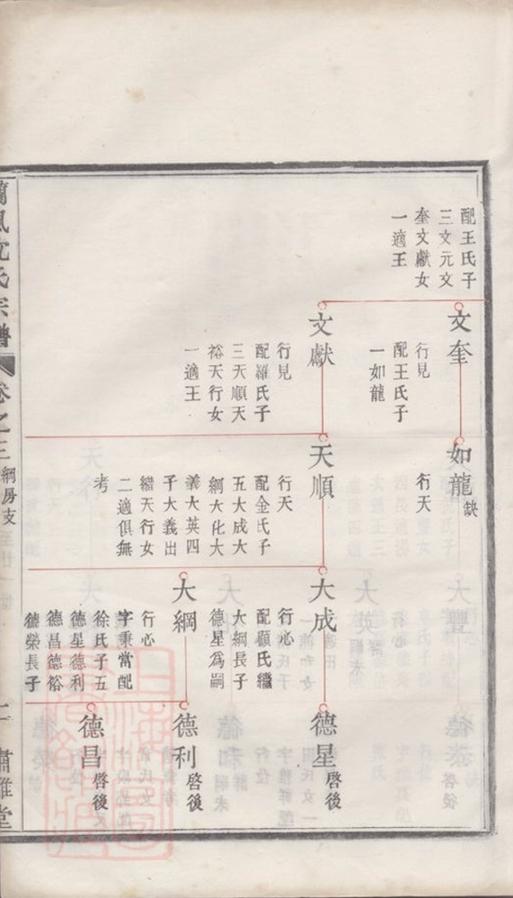 配王氏子
三文元文
奎文獻女
一適王
文奎
行見
配王氏子
一如龍
文獻
行見
配羅氏子
三天順天
裕天行女
一適王
如龍缺
行天
天順
行天
配金氏子
五大成大
綱大化大
義大英四
子大義出
繼天行女
二適俱無
考
大成
行心
配顧氏繼
大綱長子
德星為嗣
大綱
行心
字秉當配
徐氏子五
德星德利
德昌德裕
德榮長子
德星啓後
德利啓後
德昌啓後
沈氏宗譜
卷之三
綱房支
肅雝堂